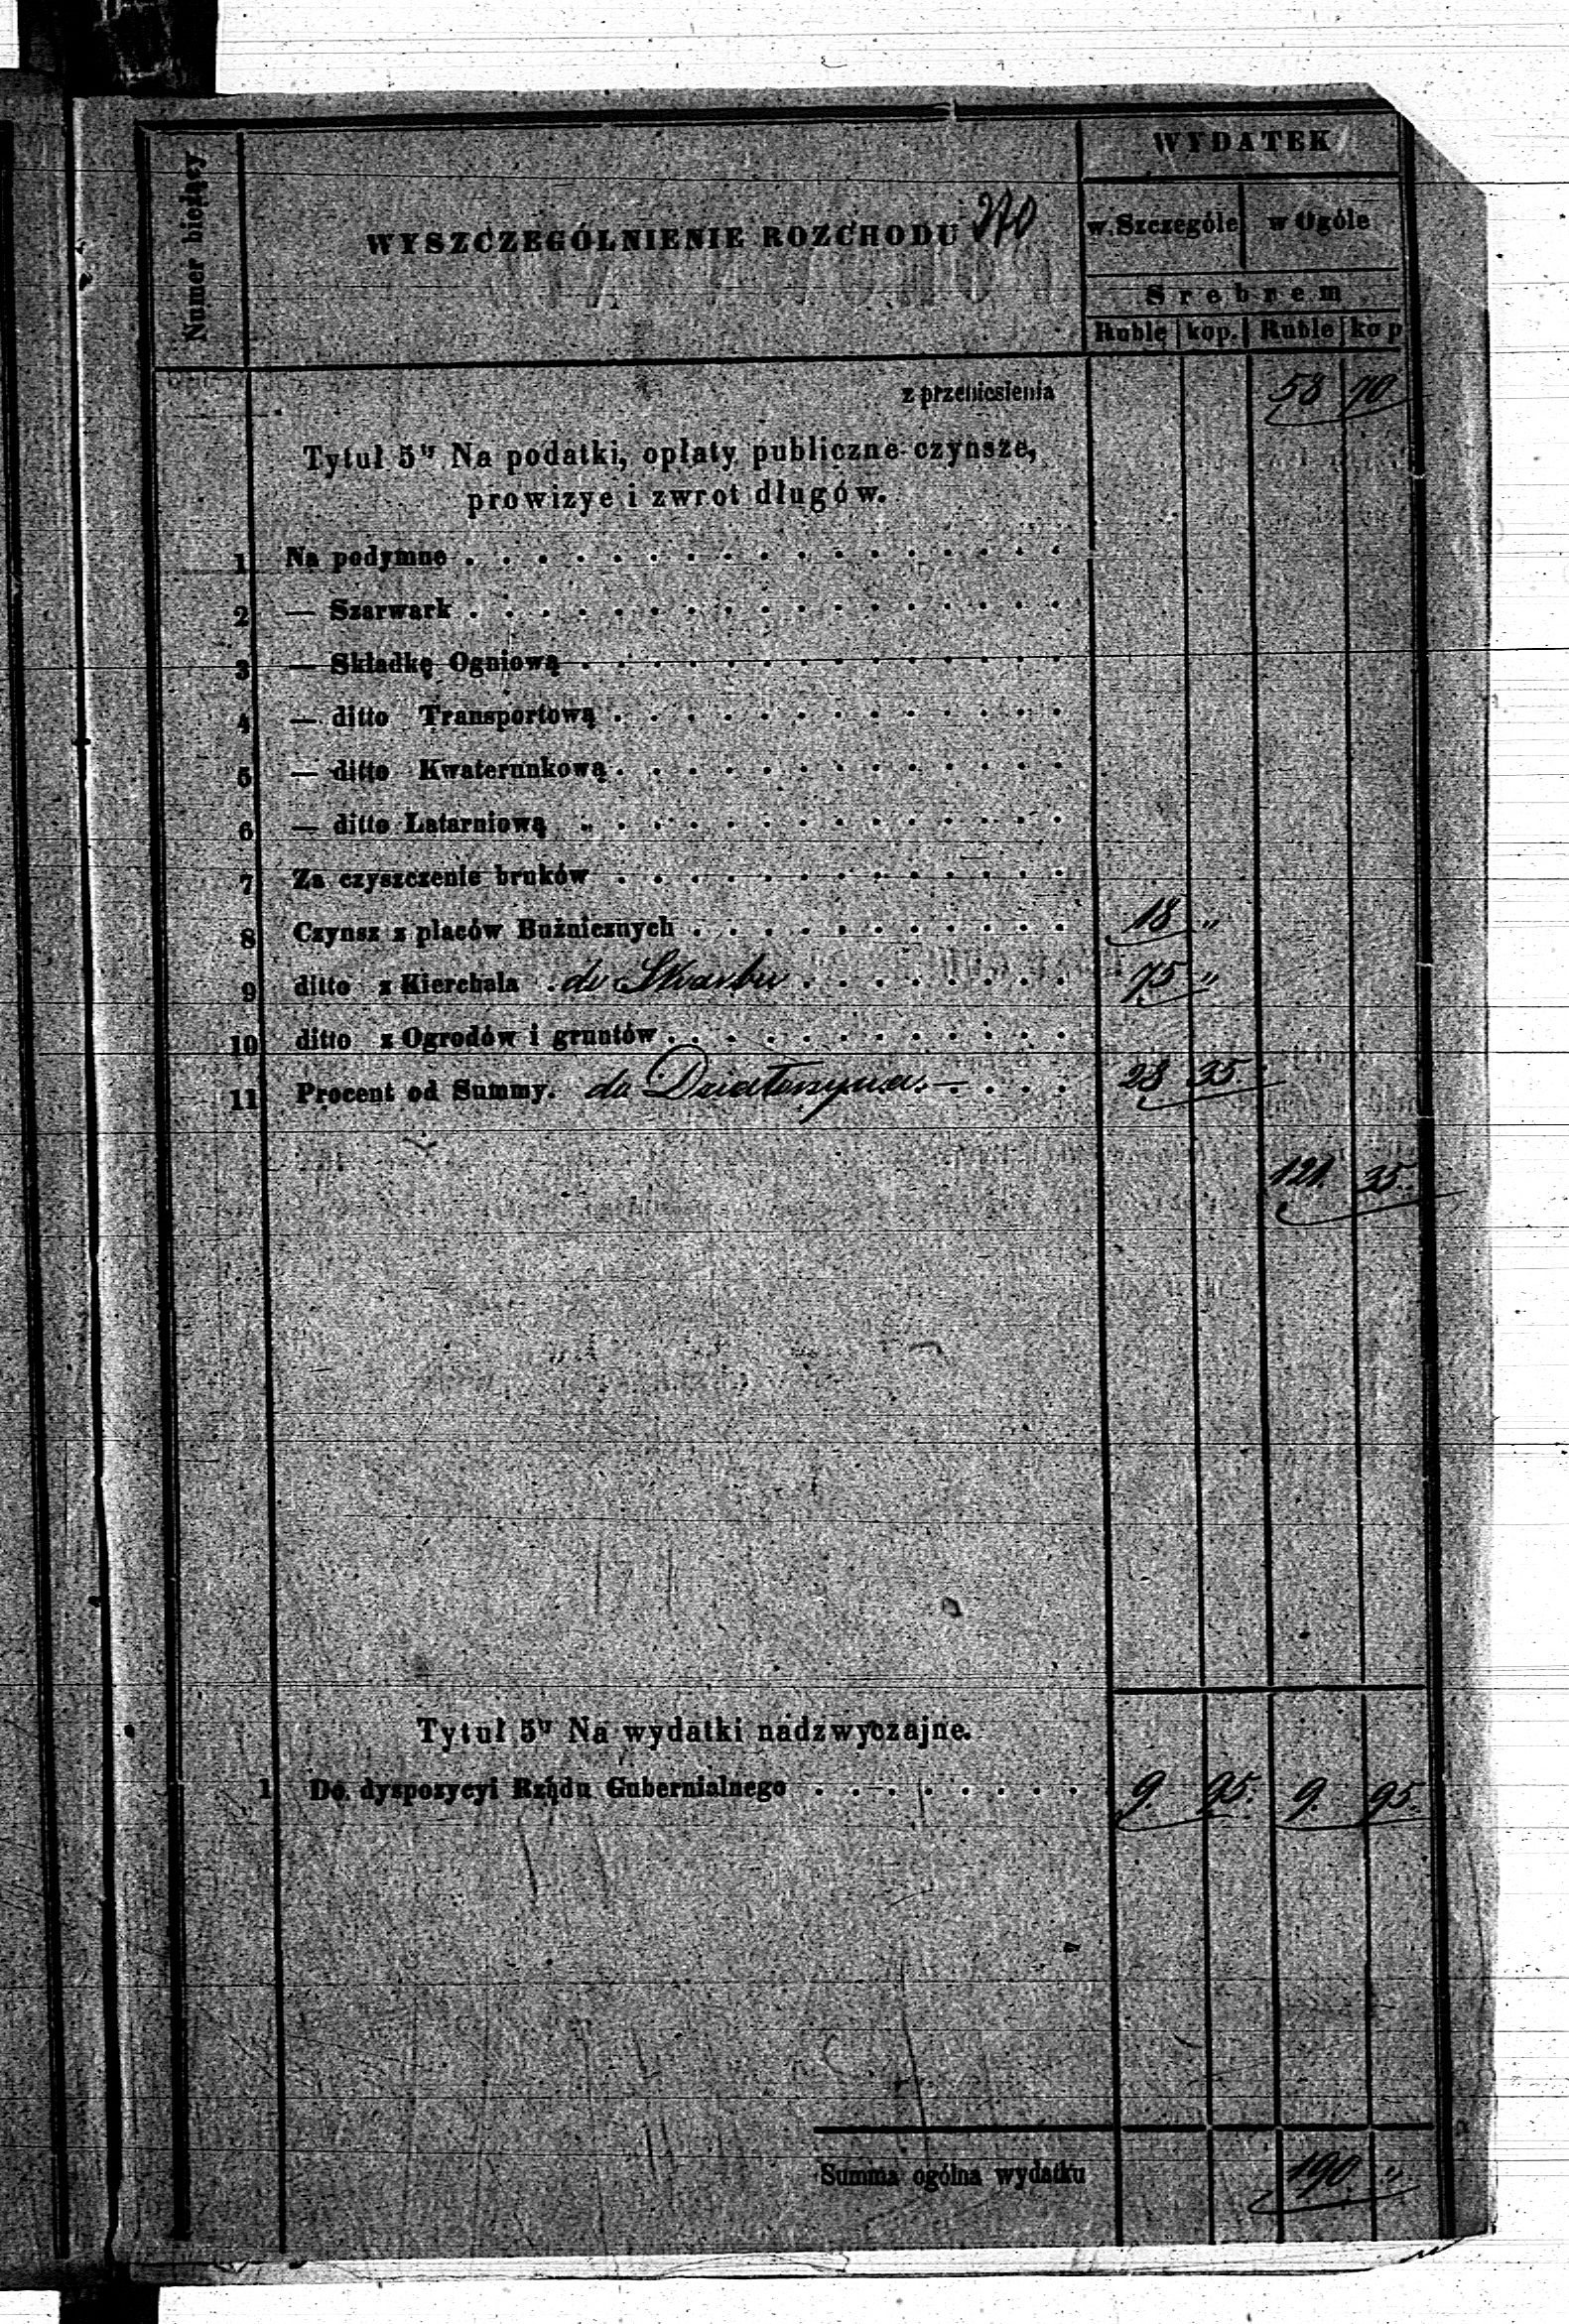 Numer bieżący
WYSZCZEGÓLNIENIE ROZCHODU 270
WYDATEK
w Szczególe w Ogóle
Srebrem
Ruble kop. Ruble kop
z przeniesienia 58 70
Tytuł 5ty Na podatki, opłaty publiczne czynsze,
prowizye i zwrot długów.
1 Na podymne
2 — Szarwark
3 — Składkę Ogniową
4 — ditto Transportową
5 — ditto Kwaterunkową
6 — ditto Latarniową
7 Za czyszczenie bruków
8 Czynsz z placów Bużnicznych 18 "
9 ditto z Kierchala do Skarbu 75 "
10 ditto z Ogrodów i gruntów
11 Procent od Summy. do Działoszyna. — 28 35.
121. 35.
Tytuł 5ty Na wydatki nadzwyczajne.
1 Do dyspozycyi Rządu Gubernialnego 9. 95. 9. 95.
Summa ogólna wydatku 190. "